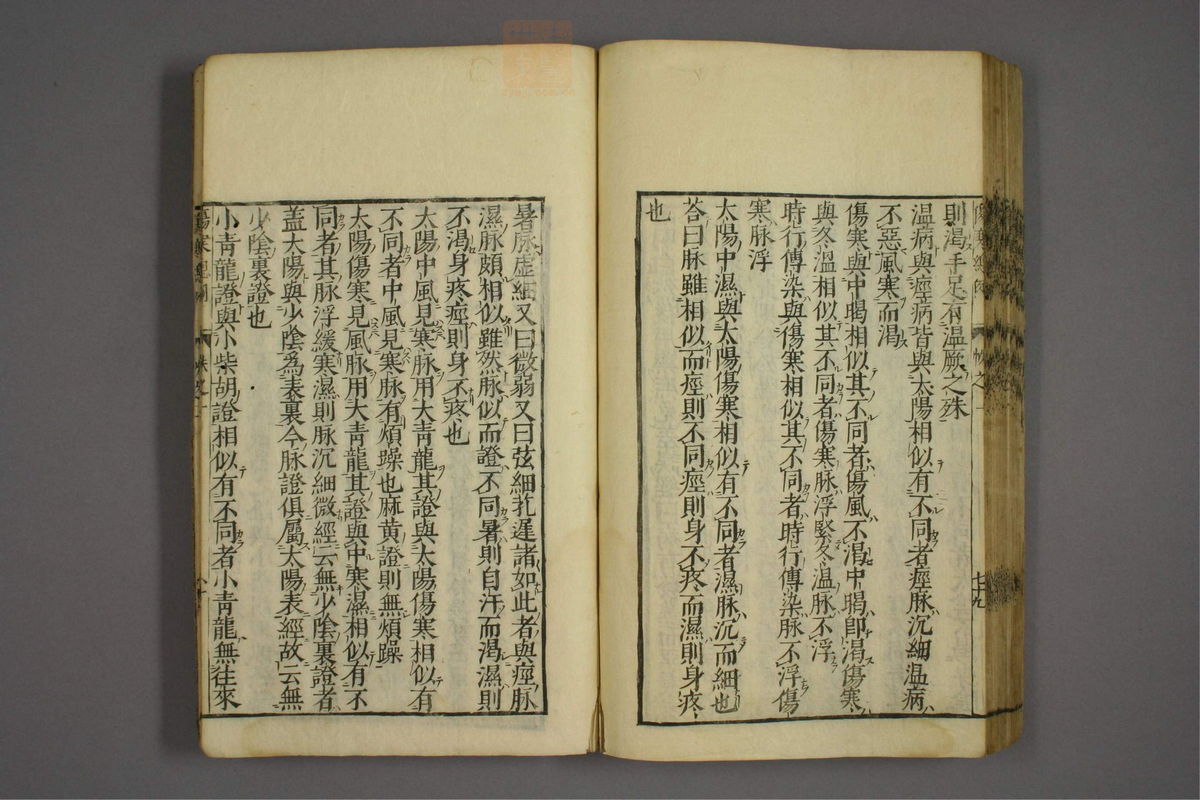 則渴手足有溫厥之殊
溫病與痙病皆與太陽相似有不同者痙脉沉細溫病
不惡風寒而渴
傷寒與中暍相似其不同者傷風不渴中暍卽渴傷寒
與冬溫相似其不同者傷寒脉浮緊冬溫脉不浮
時行傳染與傷寒相似其不同者時行傳染脉不浮傷
寒脉浮
太陽中濕與太陽傷寒相似有不同者濕脉沉而細也
荅曰脉雖相似而痙則不同痙則身不疼而濕則身疼
也
暑脉虛細又曰微弱又曰弦細芤遲諸如此者與痙脉
濕脉頗相似雖然脉似而證不同暑則自汗而渴濕則
不渴身疼痙則身不疼也
太陽中風見寒脉用大青龍其證與太陽傷寒相似有
不同者中風見寒脉有煩躁也麻黃證則無煩躁
太陽傷寒見風脉用大青龍其證與中寒濕相似有不
同者其脉浮緩寒濕則脉沉細微經云無少陰裏證者
盖太陽與少陰爲表裏今脉證俱屬太陽表經故云無
少陰裏證也
小青龍證與小柴胡證相似有不同者小青龍無往來